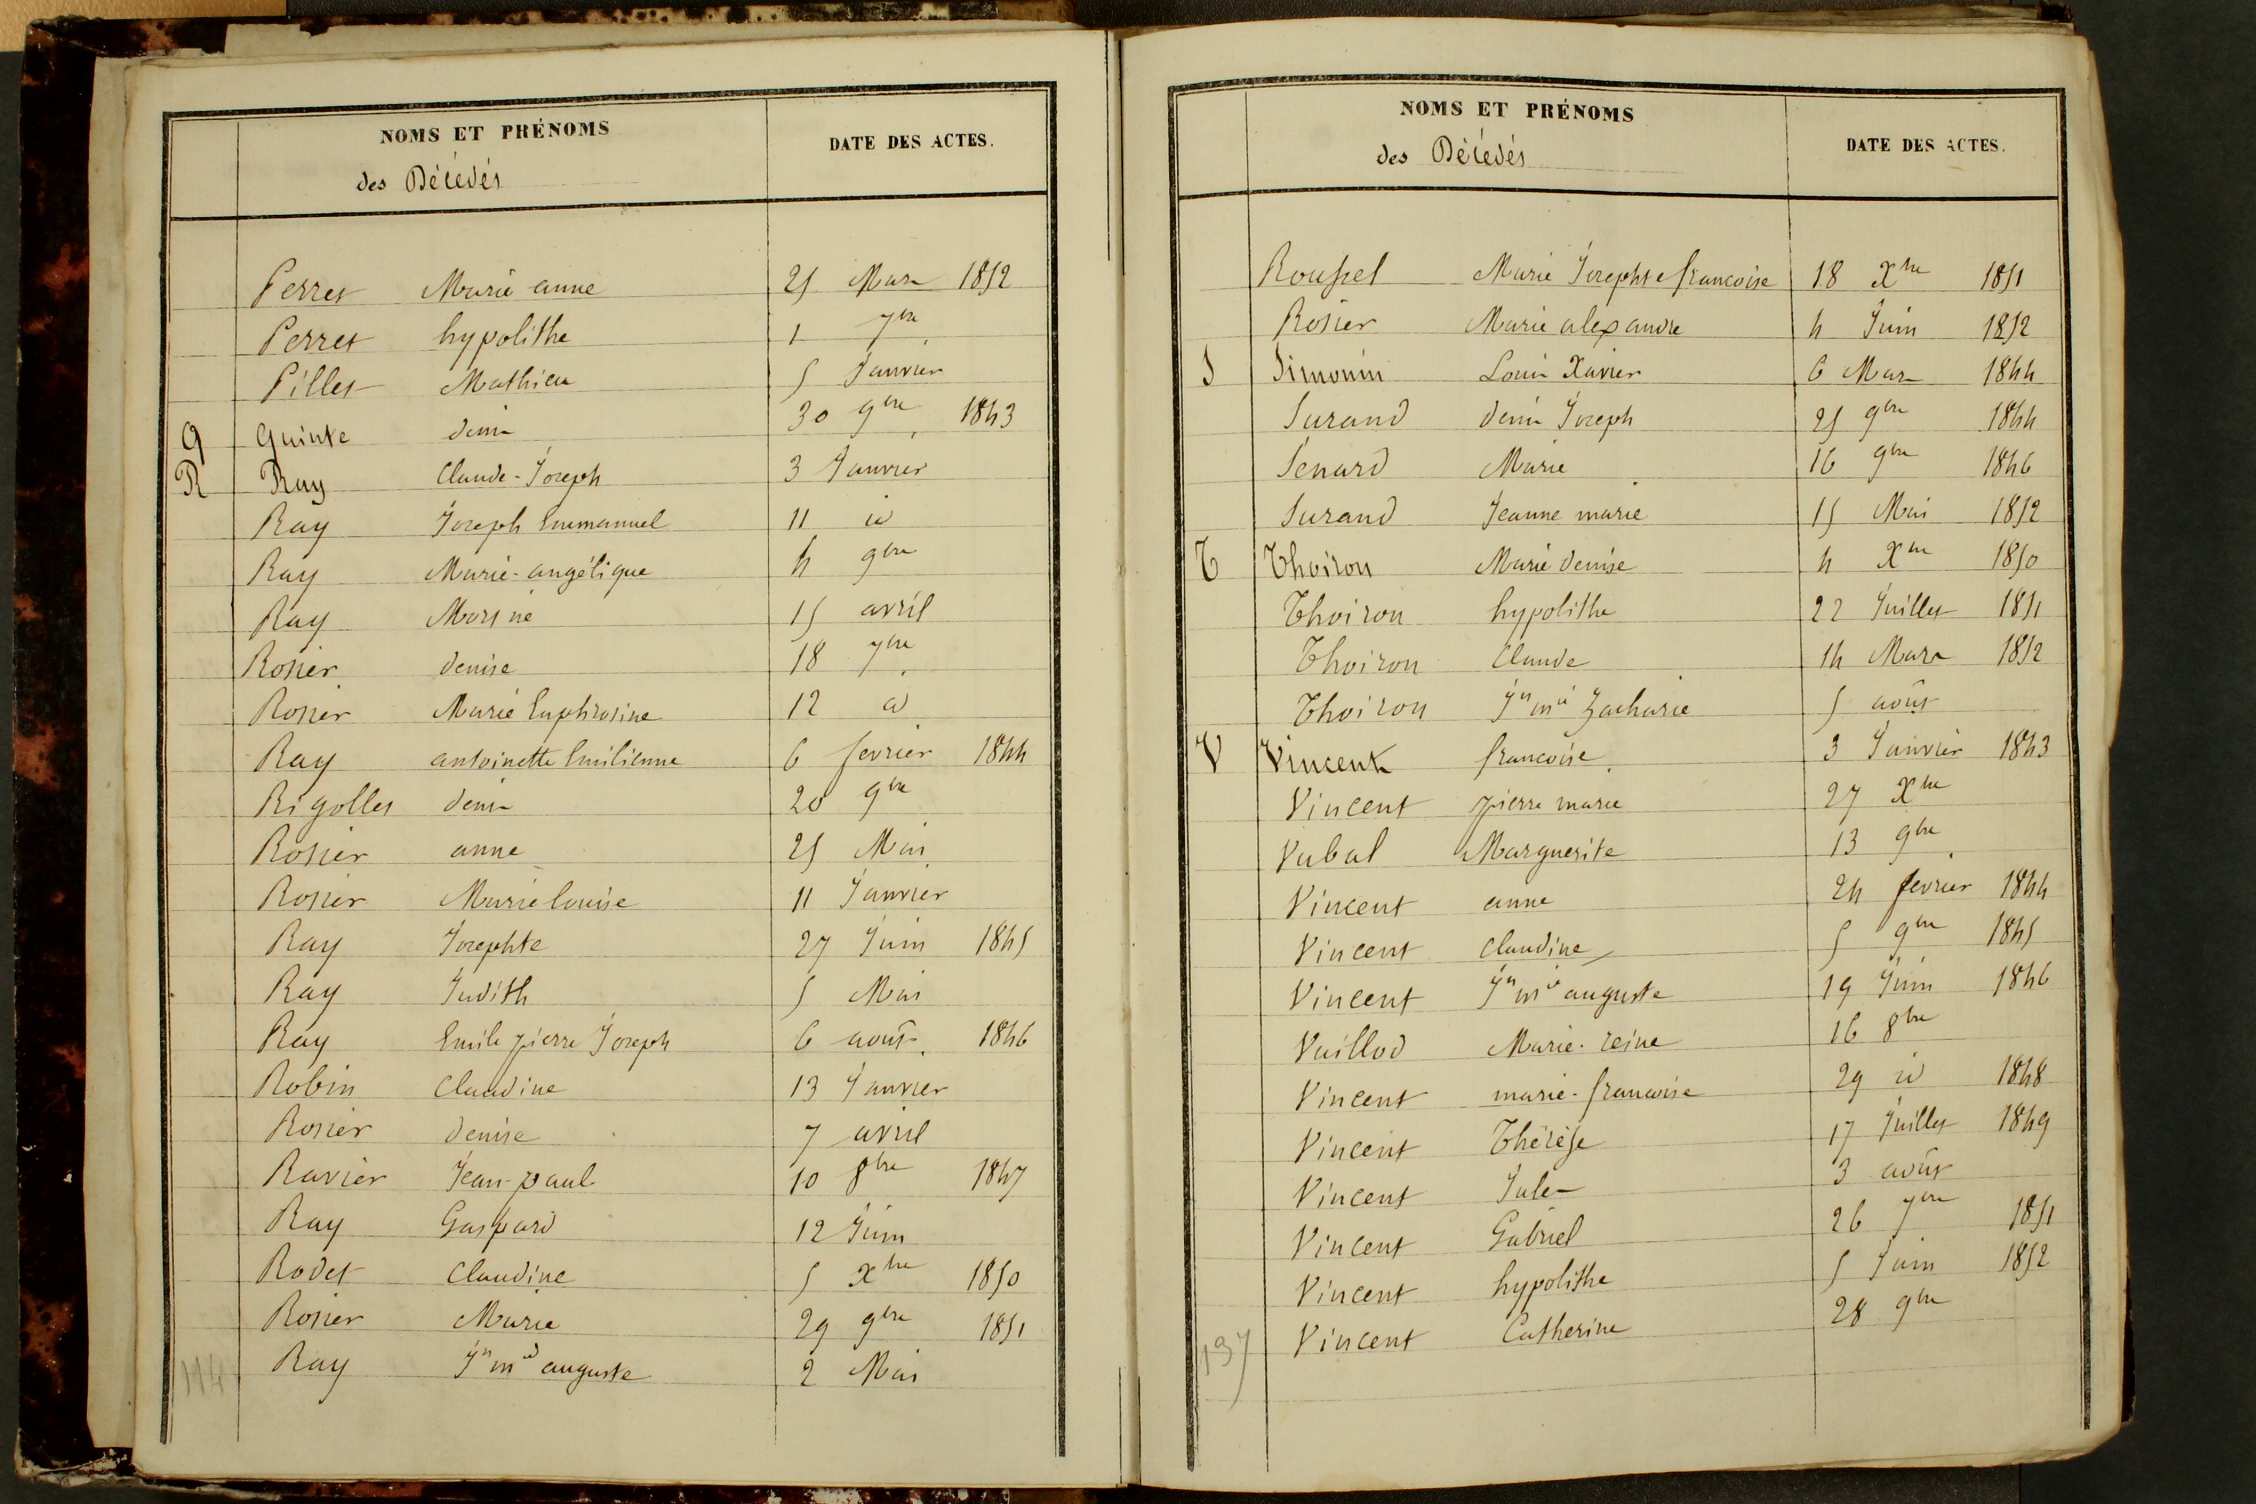 NOMS ET PRÉNOMS
des Décédés
DATE DES ACTES.
Perret Marie anne 25 Mars 1852
Perret hypolithe 1 7bre
Pillet Mathieu 5 Janvier
Q Quinte denis 30 9bre 1843
R Ray Claude-Joseph 3 Janvier
Ray Joseph Emmanuel 11 id
Ray Marie-angélique 4 9bre
Ray 15 avril
Rosier denise 18 7bre
Rosier Marie Euphrosine 12 id
Ray antoinette Emilienne 6 fevrier 1844
Rigollet denis 20 9bre
Rosier anne 25 Mai
Rosier Marie louise 11 Janvier
Ray Josephte 27 Juin 1845
Ray Judith 5 Mai
Ray Emile pierre Joseph 6 août 1846
Robin Claudine 13 Janvier
Rosier denise 7 avril
Ravier Jean-paul 10 8bre 1847
Ray Gaspard 12 Juin
Rodet Claudine 5 Xbre 1850
Rosier Marie 29 9bre 1851
Ray Jn mie auguste 2 Mai
114
NOMS ET PRÉNOMS
des Décédés
DATE DES ACTES.
Roussel Marie Josephte francoise 18 Xbre 1851
Rosier Marie alexandre 4 Juin 1852
S Simonin Louis Xavier 6 Mars 1844
Surand denis Joseph 25 9bre 1844
Senard Marie 16 9bre 1846
Surand Jeanne marie 15 Mai 1852
T Thoiron Marie denise 4 Xbre 1850
Thoiron hypolithe 22 Juillet 1851
Thoiron Claude 14 Mars 1852
Thoiron Jn mie Zacharie 5 août
V Vincent francoise 3 Janvier 1843
Vincent pierre marie 27 Xbre
Vubal Marguerite 13 9bre
Vincent anne 24 fevrier 1844
Vincent Claudine 5 9bre 1845
Vincent Jn mie auguste 19 Juin 1846
Vuillod Marie-reine 16 8bre
Vincent marie-francoise 29 id 1848
Vincent Thérèse 17 Juillet 1849
Vincent Jules 3 août
Vincent Gabriel 26 7bre 1851
Vincent hypolithe 5 Juin 1852
Vincent Catherine 28 9bre
137